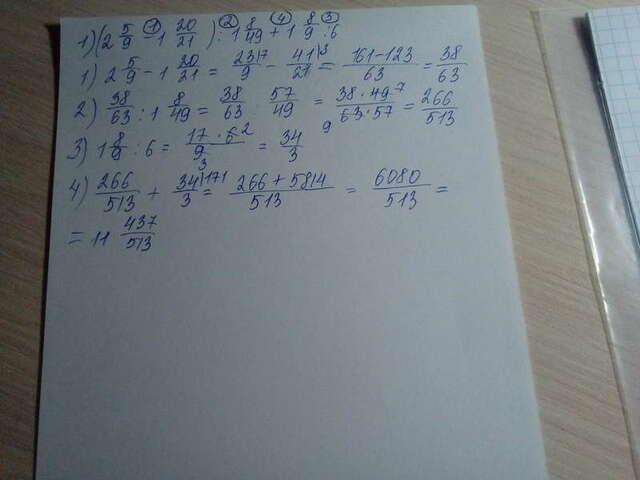 1) (2 5/9 ① 1 20/21) : ② 1 8/49 + ④ 1 8/9 ③ : 6
1) 2 5/9 - 1 20/21 = 23\7/9 - 41\3/21 = 161-123/63 = 38/63
2) 38/63 : 1 8/49 = 38/63 : 57/49 = 38·49 7/9 63·57 = 266/513
3) 1 8/9 · 6 = 17·6 2/3 9 = 34/3
4) 266/513 + 34\171/3 = 266+5814/513 = 6080/513 =
= 11 437/513